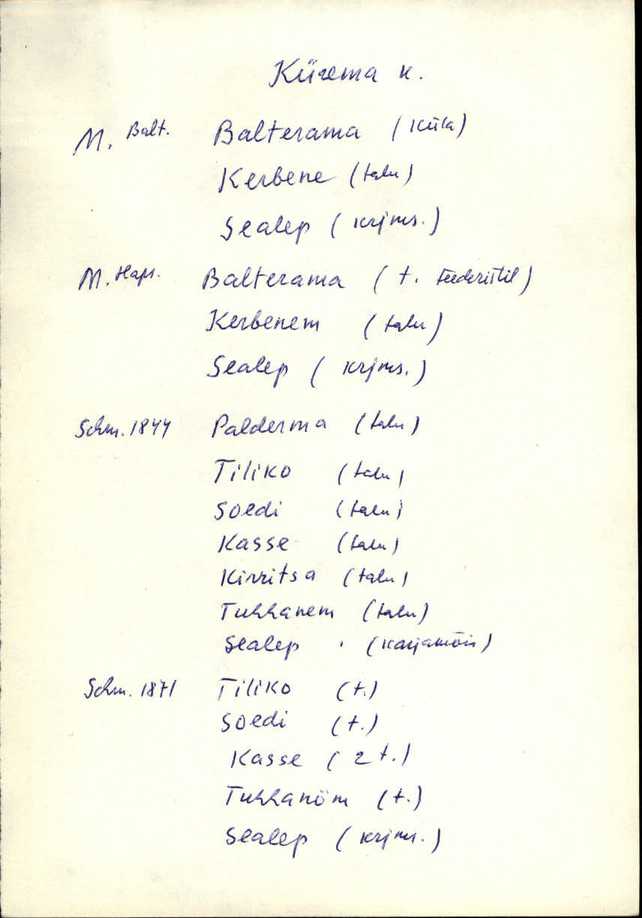 Kürema k.
M. Balt. Balterama (küla)
Kerbene (talu)
Sealep (krjms.)
M. Haps. Balterama (t.
Kerbenem (talu)
Sealep (krjms.)
Schm. 1844 Palderma (talu)
Tiliko (talu)
Soedi (talu)
Kasse (talu)
Kirritsa (talu)
Tuhkanem (talu)
Sealep (karjamõis)
Schm. 1871 Tiliko (t.)
Soedi (t.)
Kasse (2 t.)
Tuhkanöm (t.)
Sealep (krjms.)